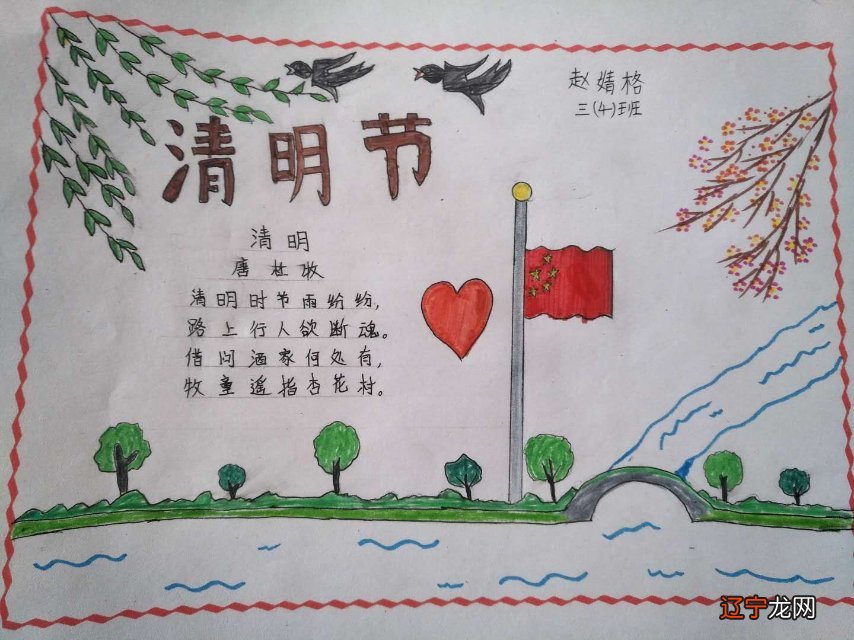 清明节
赵婧格
三(4)班
清明
唐 杜牧
清明时节雨纷纷,
路上行人欲断魂。
借问酒家何处有,
牧童遥指杏花村。
辽宁龙网